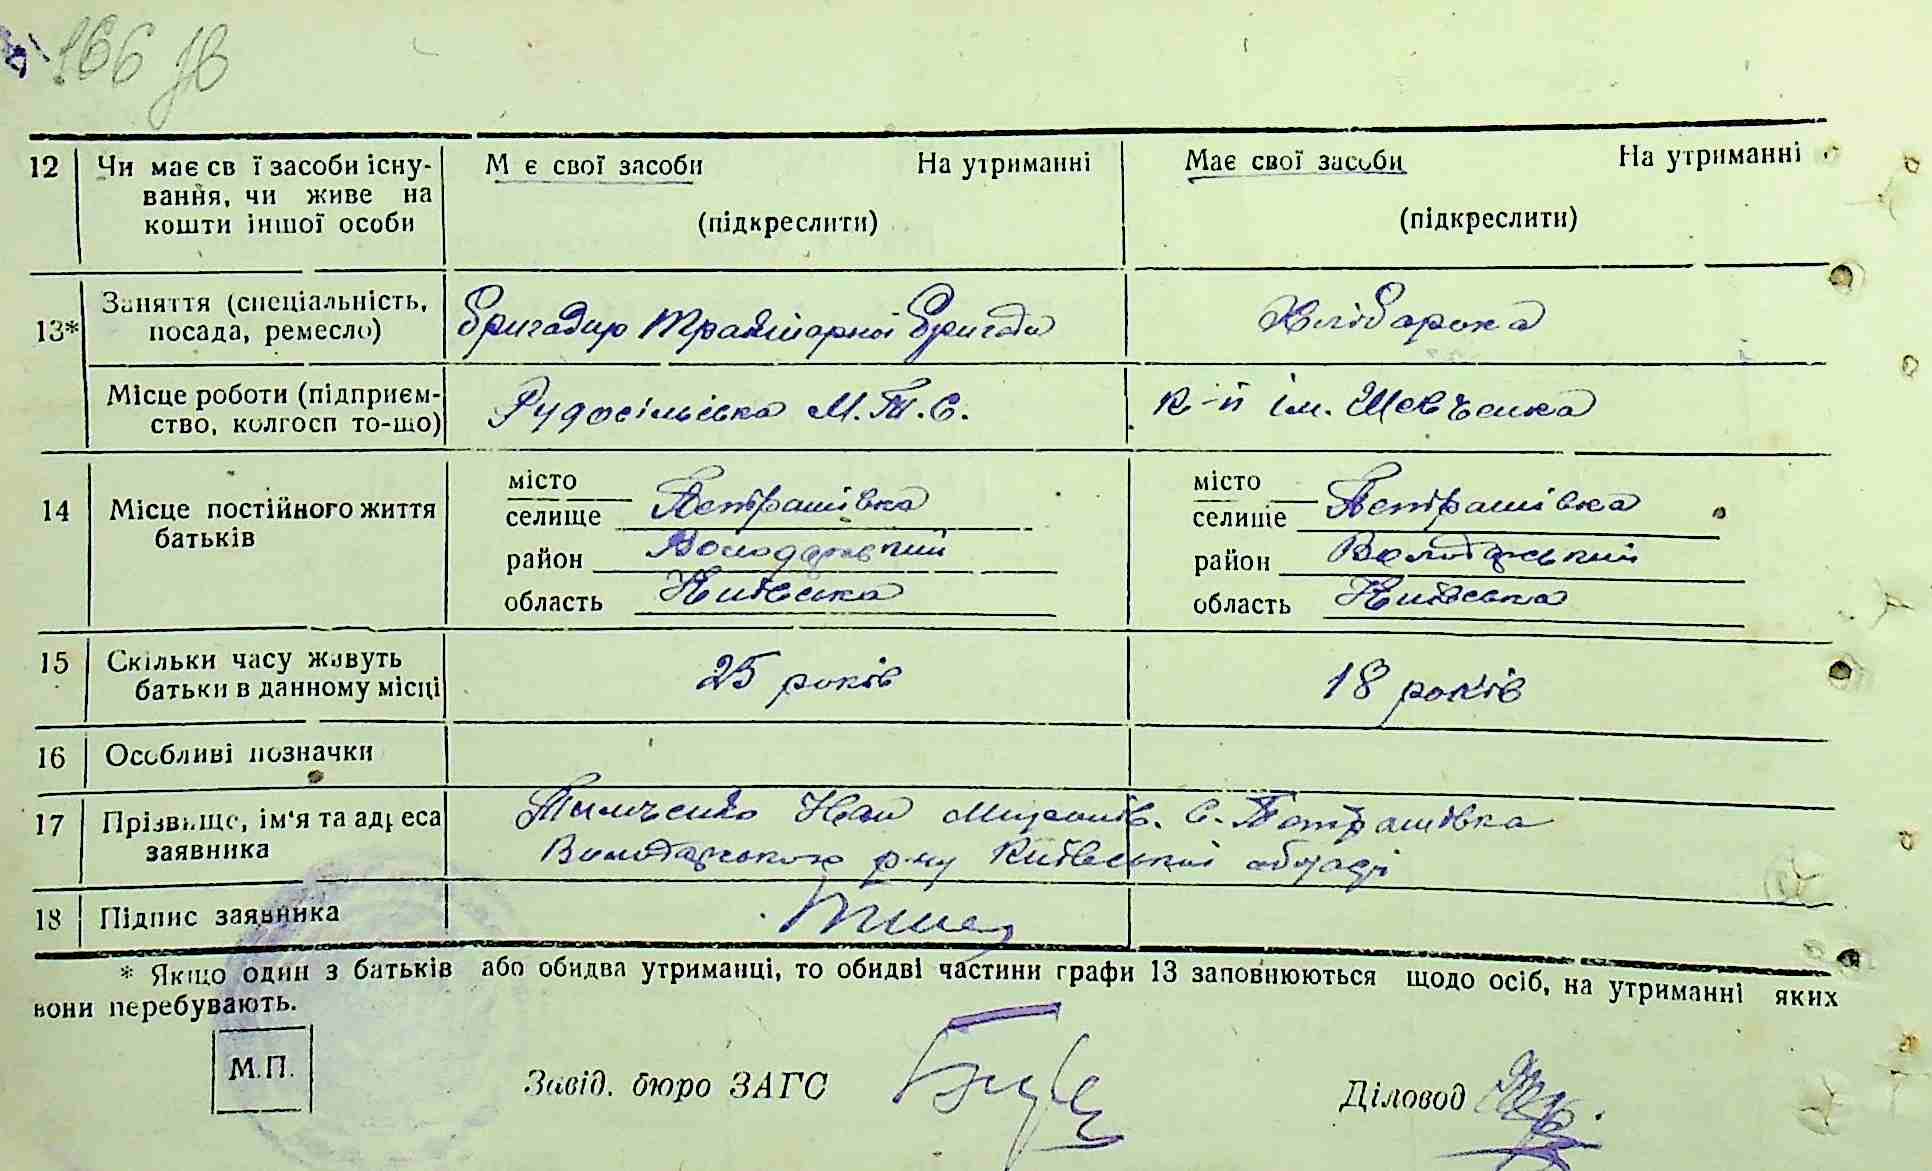 166 зв
12 Чи має св ї засоби існу-
вання, чи живе на
кошти іншої особи
М є свої засоби На утриманні
(підкреслити)
Має свої засоби На утриманні
(підкреслити)
13* Заняття (спеціальність,
посада, ремесло)
Бригадир Тракторної бригади
Хліборобка
Місце роботи (підприєм-
ство, колгосп то-що)
Рудосільська М.Т.С.
к-п ім. Шевченка
14 Місце постійного життя
батьків
місто
селище Петрашівка
район Володарський
область Київська
місто
селище Петрашівка
район Володарський
область Київська
15 Скільки часу живуть
батьки в данному місці
25 років
18 років
16 Особливі позначки
17 Прізвище, ім'я та адреса
заявника
Тымченко Иван Миронів. С. Петрашівка
Володарського р-ну Київської області
18 Підпис заявника
* Якщо один з батьків або обидва утриманці, то обидві частини графи 13 заповнюються щодо осіб, на утриманні яких
вони перебувають.
М.П.
Завід. бюро ЗАГС
Діловод